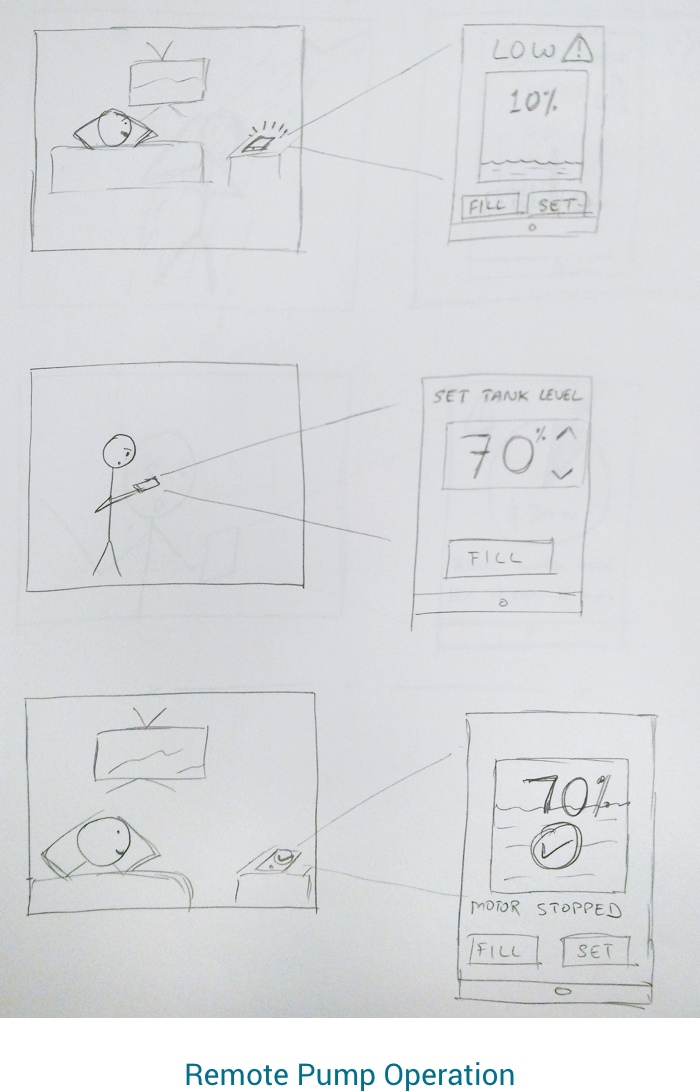 LOW
10%
FILL SET
SET TANK LEVEL
70%
FILL
70%
MOTOR STOPPED
FILL SET
Remote Pump Operation